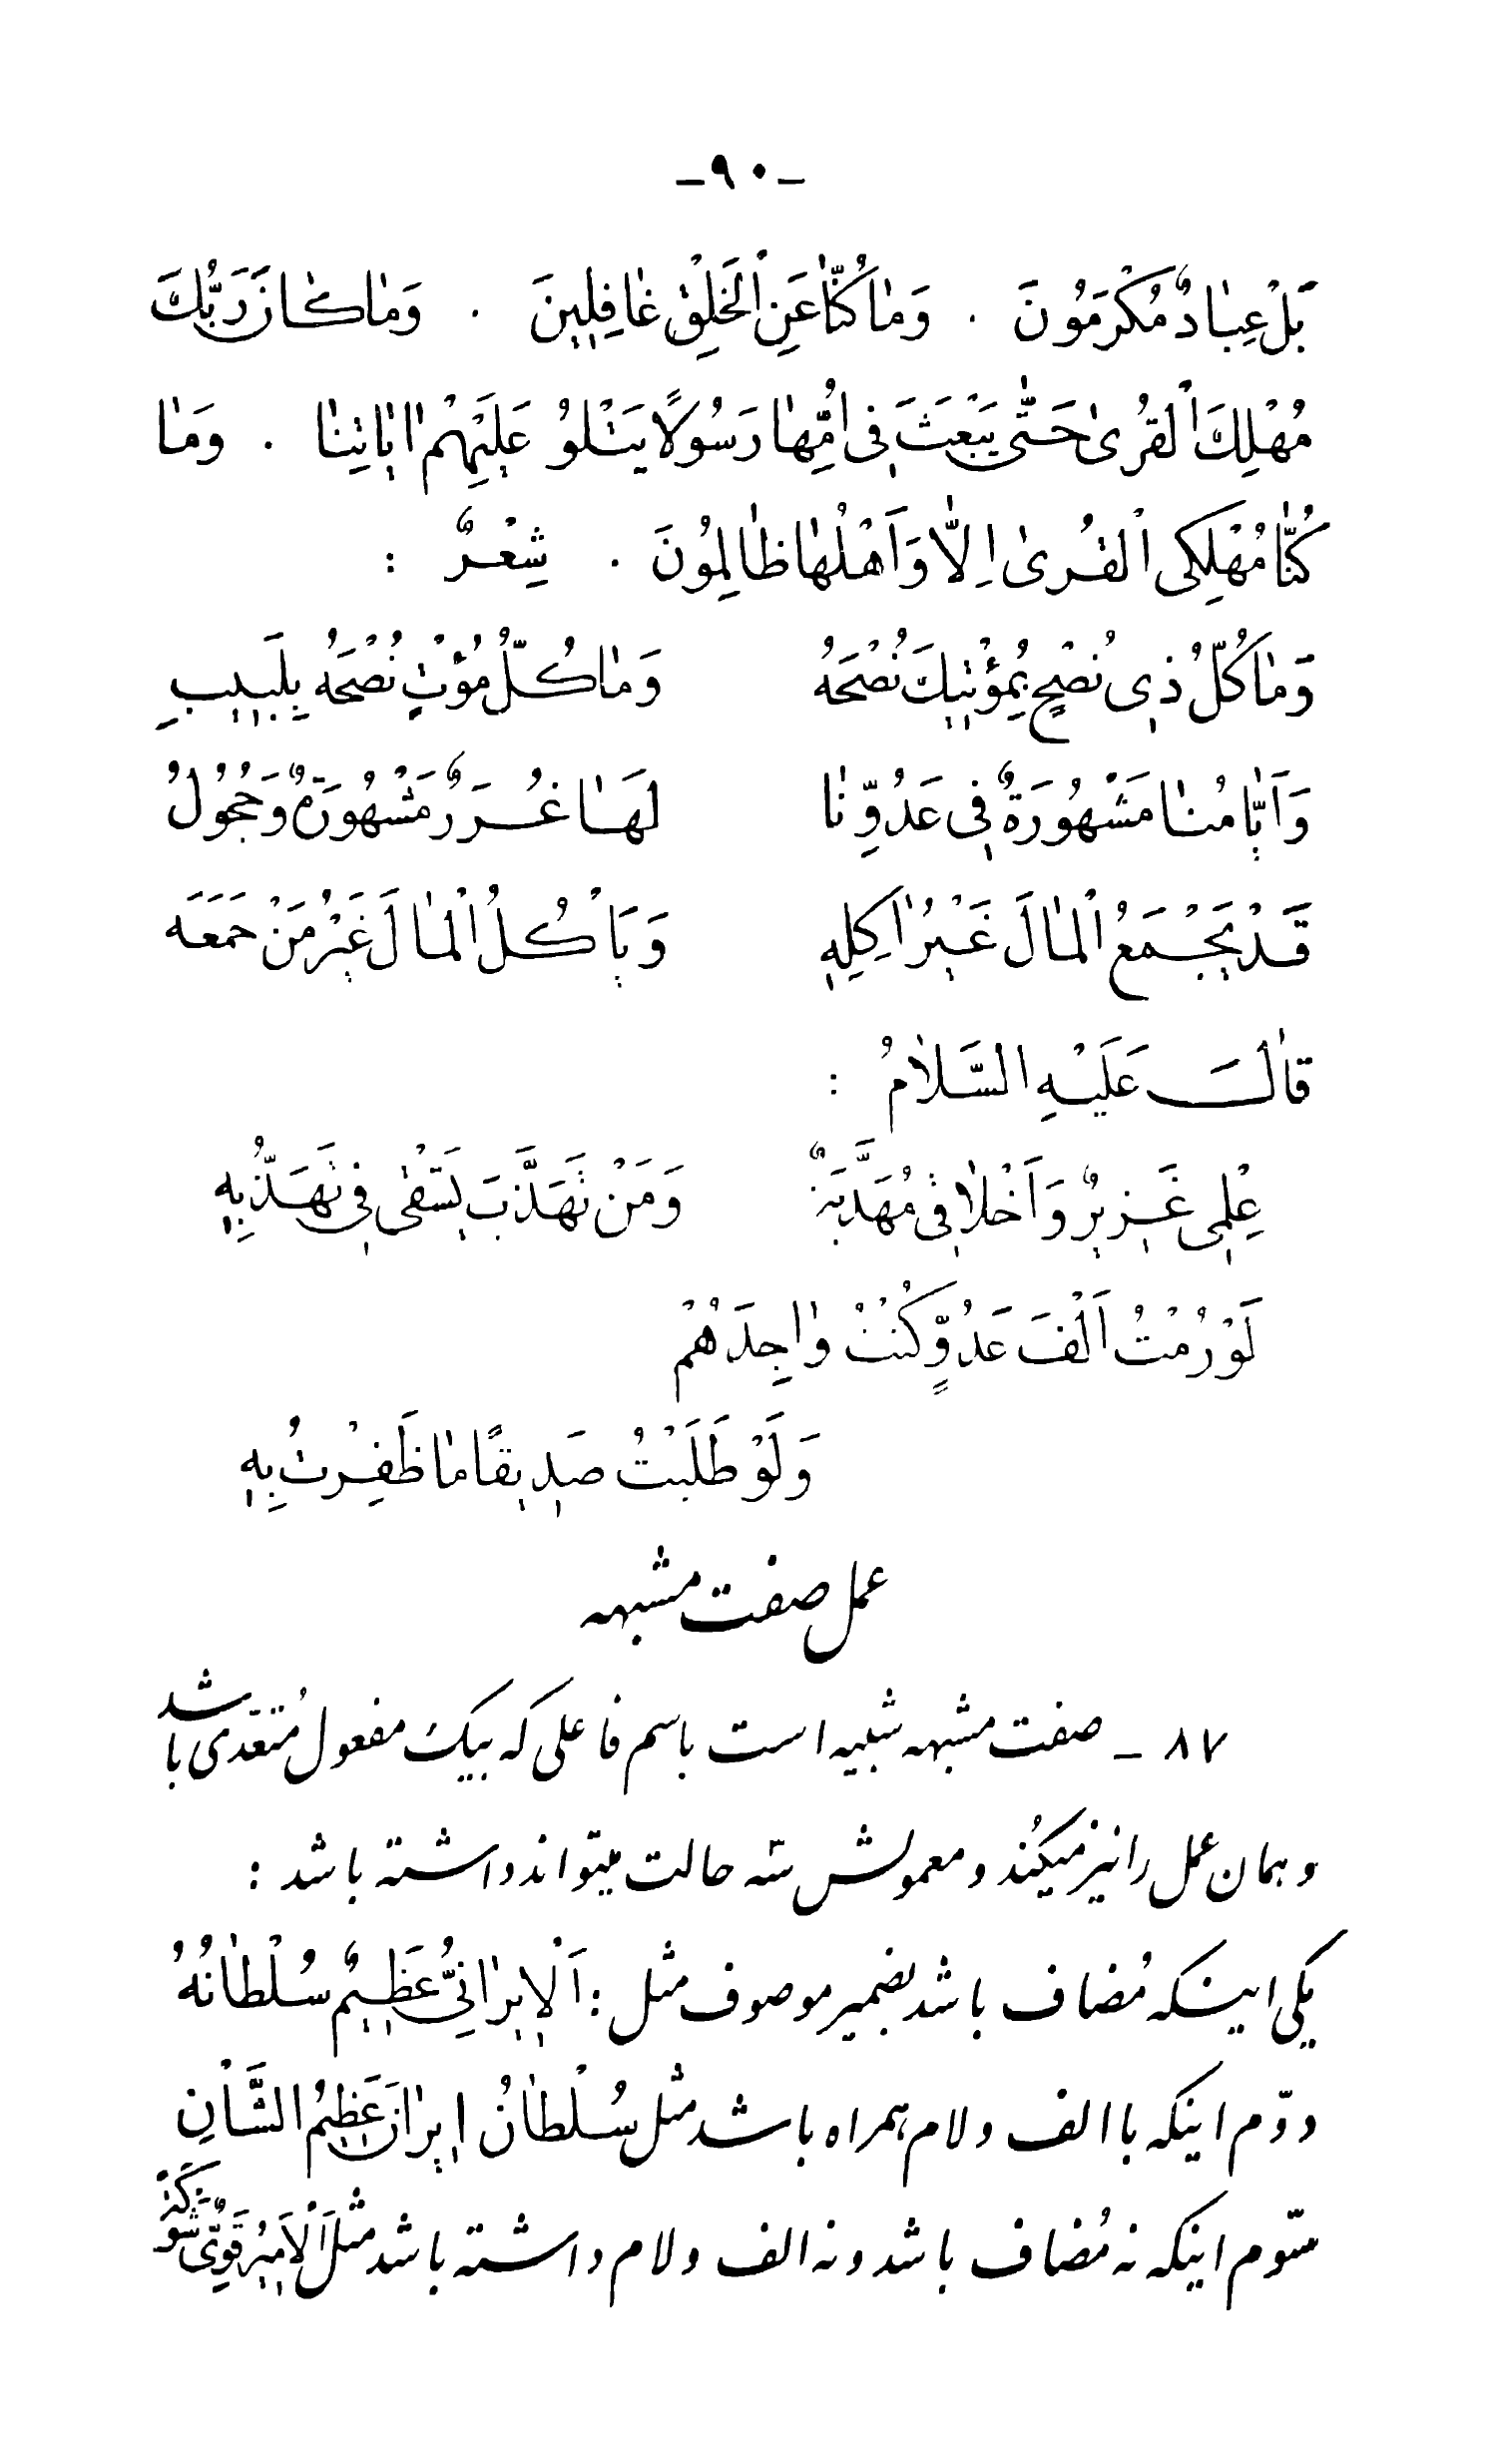 -٩٠-
بَلْ عِبٰادٌ مُكْرَمُونَ . وَمٰا كُنّٰا عَنِ ٱلْخَلْقِ غٰافِلِينَ . وَمٰا كٰانَ رَبُّكَ
مُهْلِكَ ٱلْقُرىٰ حَتّٰى يَبْعَثَ فِى اُمِّهٰا رَسُولًا يَتْلُو عَلَيْهِمْ اٰيٰاتِنٰا . وَمٰا
كُنّٰا مُهْلِكِى ٱلْقُرىٰ اِلّٰا وَاَهْلُهٰا ظٰالِمُونَ . شِعْرٌ :
وَمٰا كُلُّ ذِى نُصْحٍ بِمُؤْتِيكَ نُصْحَهُ وَمٰا كُلُّ مُؤْتٍ نُصْحَهُ بِلَبِيبِ
وَاَيّٰامُنٰا مَشْهُورَةٌ فِى عَدُوِّنٰا لَهٰا غُرَرٌ مَشْهُورَةٌ وَحُجُولُ
قَدْ يَجْمَعُ ٱلْمٰالَ غَيْرُ اٰكِلِهِ وَيَأْكُلُ ٱلْمٰالَ غَيْرُ مَنْ جَمَعَه
قٰالَ عَلَيْهِ السَّلاٰمُ :
عِلْمِى غَزِيرٌ وَاَخْلاٰقِى مُهَذَّبَةٌ وَمَنْ تَهَذَّبَ يَشْقىٰ فِى تَهَذُّبِهِ
لَوْ رُمْتُ اَلْفَ عَدُوٍّ كُنْتُ وٰاجِدَهُمْ
وَلَوْ طَلَبْتُ صَدِيقًا مٰا ظَفِرْتُ بِهِ
عمل صفت مشبهه
٨٧ - صفت مشبهه شبیه است باسم فاعلی که بیک مفعول مُتعدّی باشد
و همان عمل را نیز میکُند و معمولش سَه حالت میتواند داشته باشد :
یکی اینکه مُضاف باشد بضمیر موصوف مثل : اَلْاِیرٰانِیُّ عَظِیمٌ سُلْطٰانُهُ
دوّم اینکه با الف و لام همراه باشد مثل سُلْطٰانُ اِیرٰانَ عَظِیمُ الشَّأْنِ
سّوم اینکه نه مُضاف باشد و نه الف و لام داشته باشد مثل اَلْاَمِیرُ قَوِیٌّ شَوْكَةً